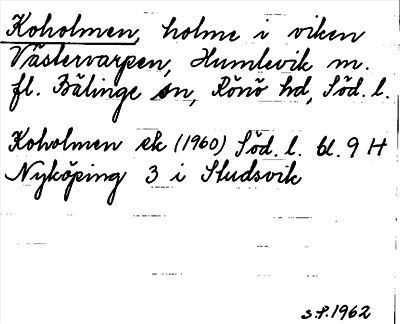 Koholmen, holme i viken
Västervarpen, Humlevik m.
fl. Bälinge sn, Rönö hd, Söd. l.
Koholmen ek (1960) Söd. l. bl. 9 H
Nyköping 3 i Studsvik
S.P. 1962